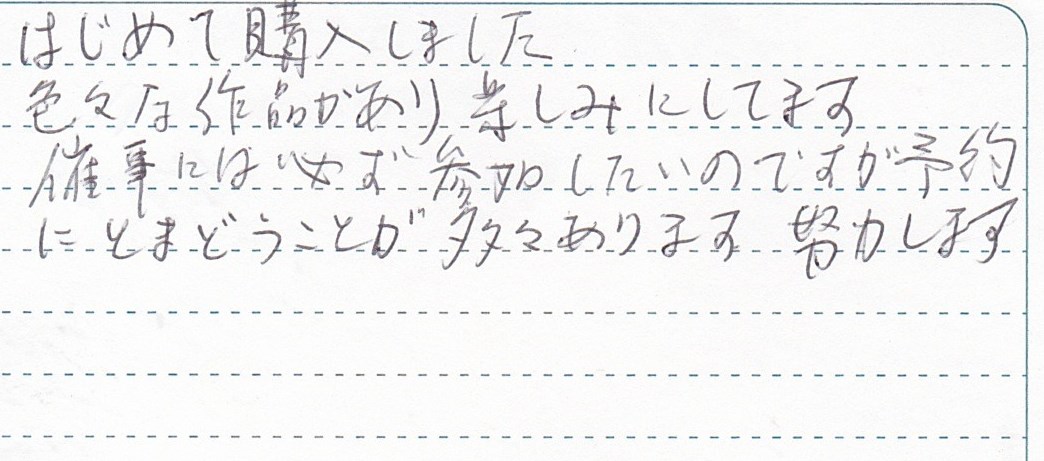 はじめて購入しました
色々な作品があり楽しみにしてます
催事には必ず参加したいのですが予約
にとまどうことが多々あります 努力します